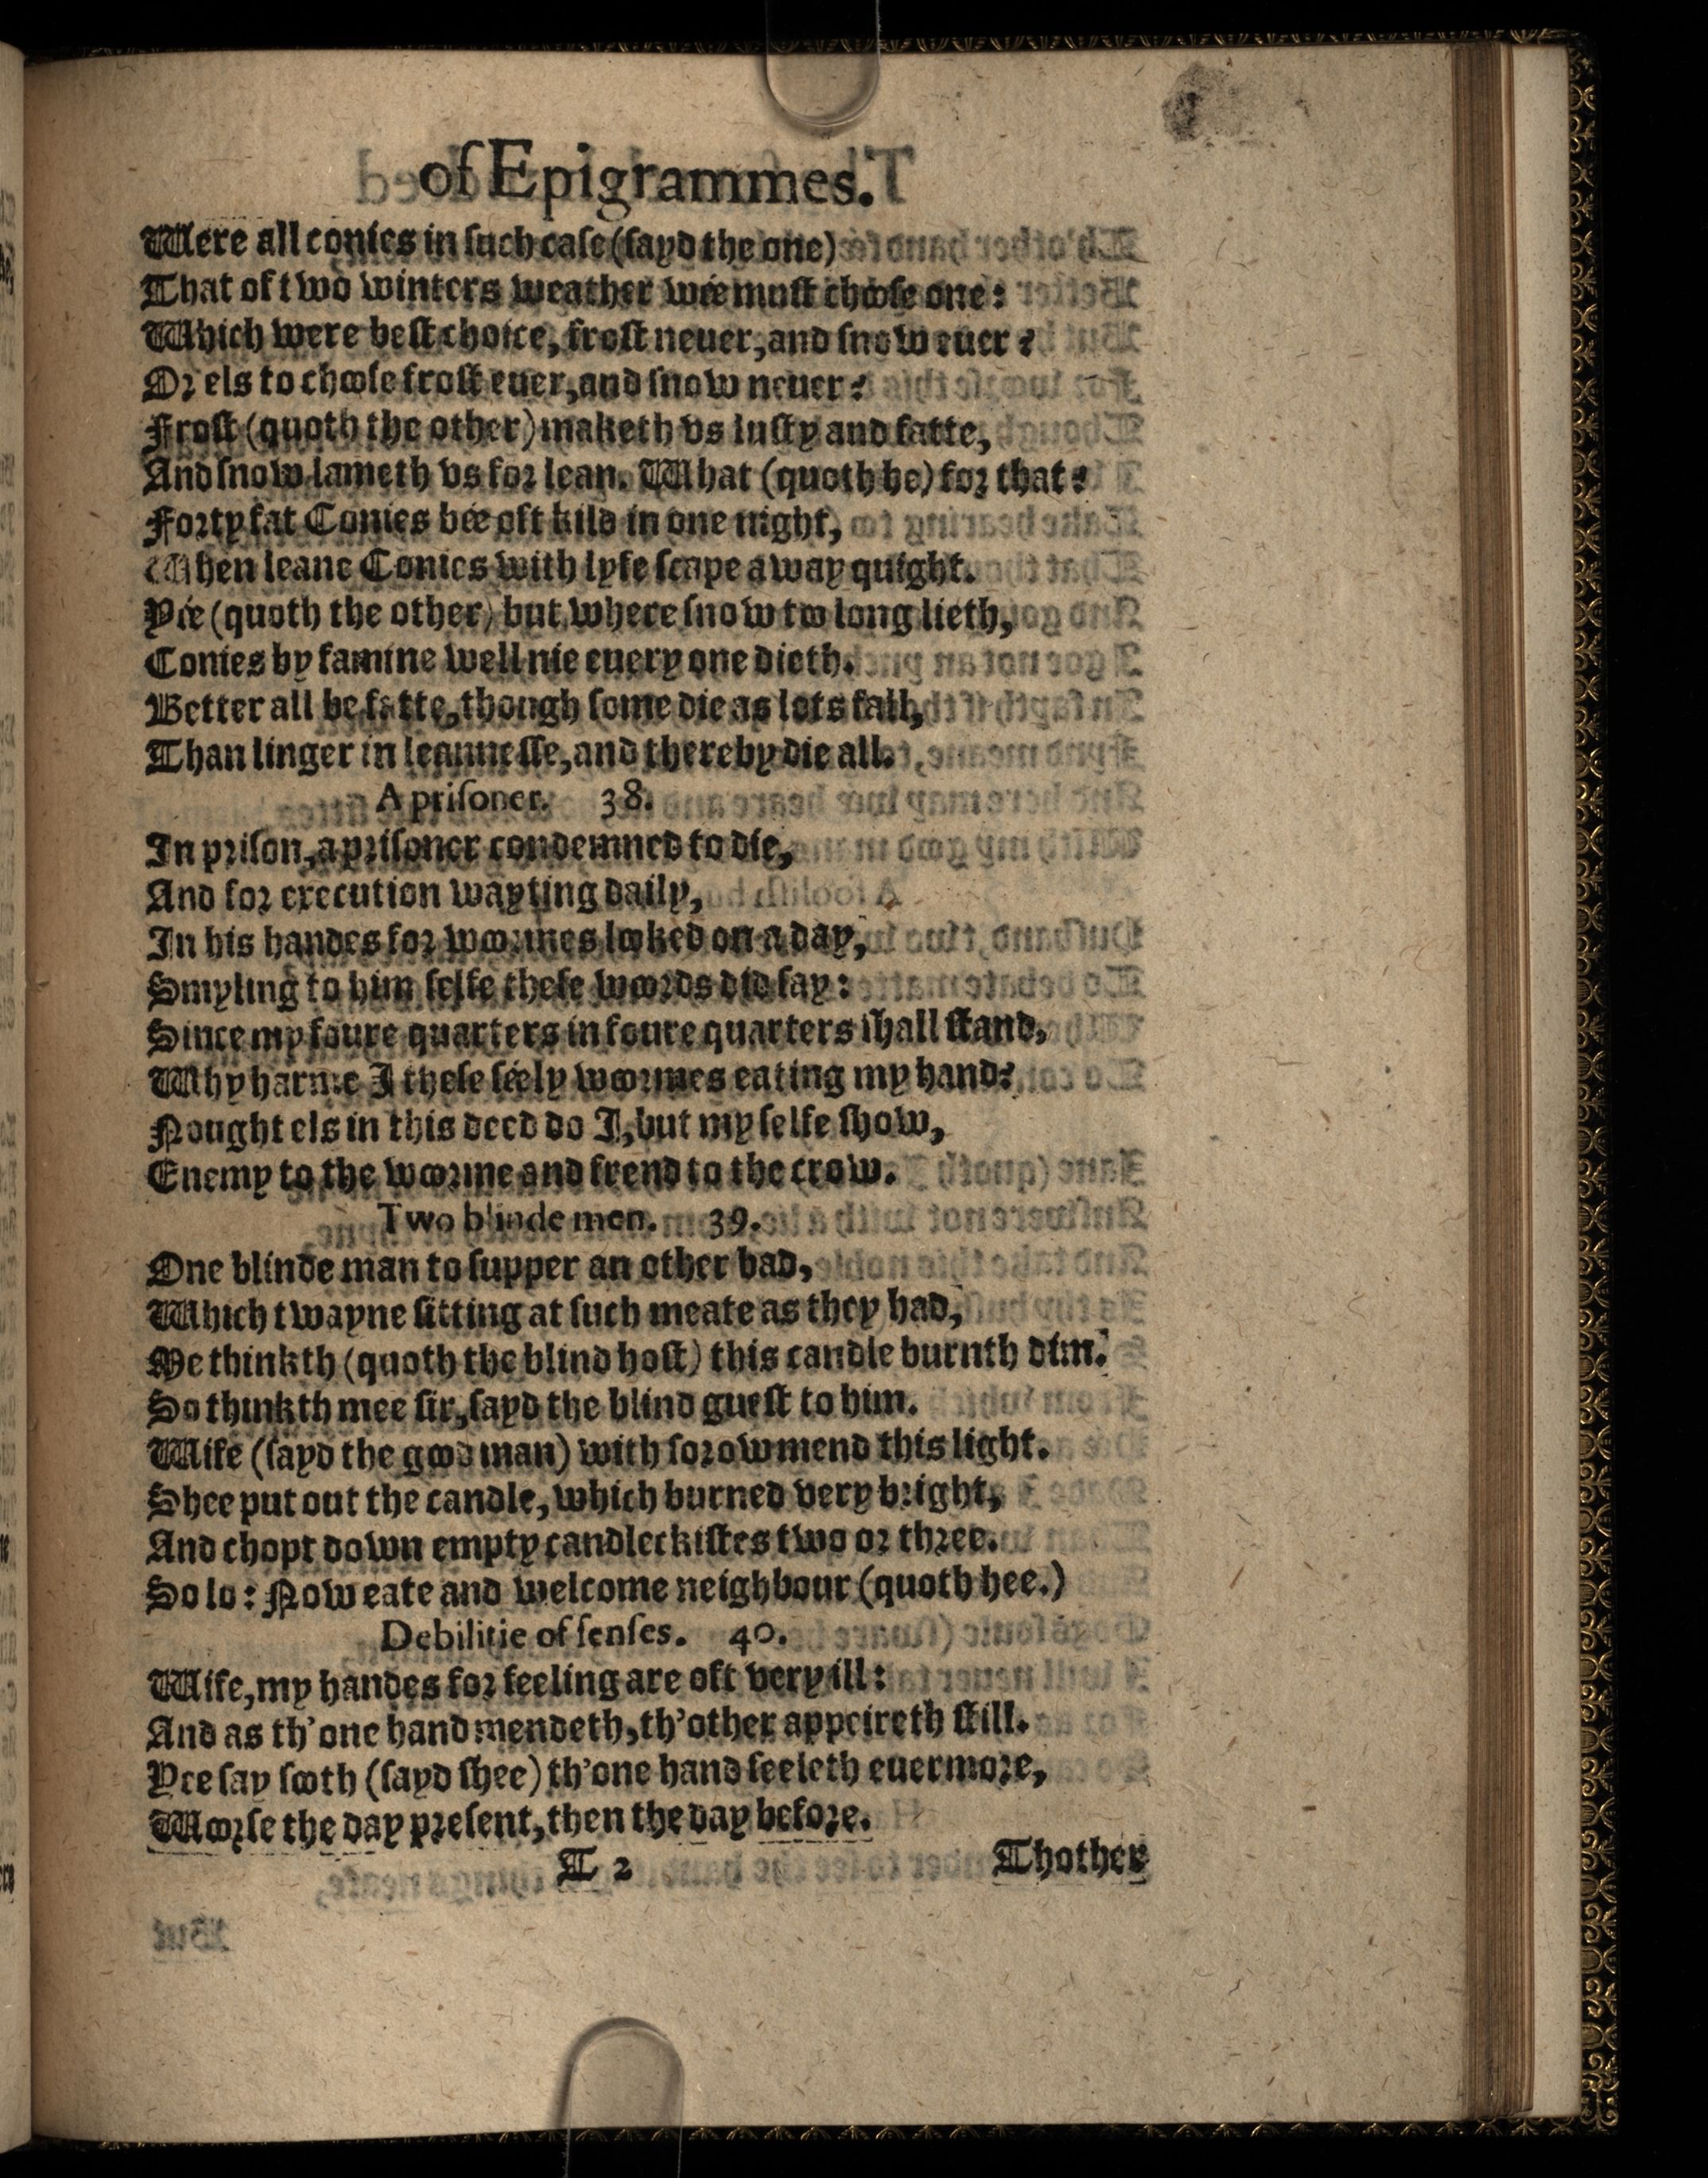 of Epigrammes.
Were all conies in ſuch caſe (ſayd the one)
That of two winters weather wée muſt chooſe one:
Which were beſt choice, froſt neuer, and ſnow euer?
Or els to chooſe froſt euer, and ſnow neuer?
Froſt (quoth the other) maketh vs luſty and fatte,
And ſnow lameth vs for lean. What (quoth he) for that?
Forty fat Conies bée oft kild in one night,
When leane Conies with lyfe ſcape away quight.
Yée (quoth the other) but where ſnow too long lieth,
Conies by famine well nie euery one dieth.
Better all be fatte, though ſome die as lots fall,
Than linger in leanneſſe, and thereby die all.
A priſoner. 38.
In priſon, a priſoner condemned to die,
And for execution wayting daily,
In his handes for woormes looked on a day,
Smyling to him ſelfe theſe woords did ſay:
Since my foure quarters in foure quarters ſhall ſtand,
Why harme I theſe ſéely woormes eating my hand?
Nought els in this deed do I, but my ſelfe ſhow,
Enemy to the woorme and frend to the crow.
Two blinde men. 39.
One blinde man to ſupper an other bad,
Which twayne ſitting at ſuch meate as they had,
Me thinkth (quoth the blind hoſt) this candle burnth dim.
So thinkth mee ſir, ſayd the blind gueſt to him.
Wife (ſayd the good man) with ſorow mend this light.
Shee put out the candle, which burned very bright,
And chopt down empty candleckiſtes two or three.
So lo: Now eate and welcome neighbour (quoth hee.)
Debilitie of ſenſes. 40.
Wife, my handes for feeling are oft very ill:
And as th'one hand mendeth, th'other appeireth ſtill.
Yee ſay ſooth (ſayd ſhee) th'one hand feeleth euermore,
Woorſe the day preſent, then the day before.
T 2 Thother